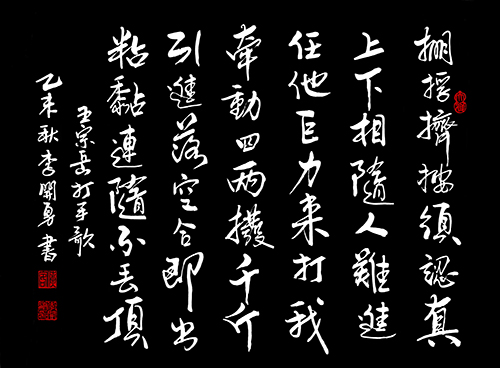 掤捋擠按須認真
上下相隨人難進
任他巨力来打我
牽動四两撥千斤
引進落空合即出
粘黏連隨不丢頂
王宗岳打手歌
乙未秋李開勇書